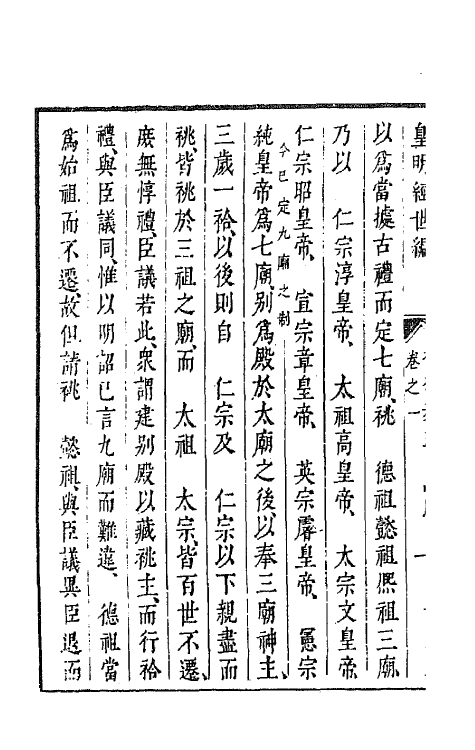 皇明經世編
卷之一
以爲當據古禮而定七廟、祧 德祖懿祖熈祖三廟
乃以 仁宗淳皇帝、 太祖高皇帝、 太宗文皇帝、
仁宗昭皇帝、 宣宗章皇帝、 英宗睿皇帝、 憲宗
今已定九廟之制
純皇帝爲七廟、别爲殿於太廟之後、以奉三廟神主、
三歲一祫、以後則自 仁宗及 仁宗以下親盡而
祧、皆祧於三祖之廟、而 太祖 太宗、皆百世不遷、
庻無悖禮、臣議若此、衆謂建别殿以藏祧主、而行祫
禮、與臣議同、惟以明詔已言九廟而難違、 德祖當
爲始祖而不遷、故但請祧 懿祖、與臣議異臣退而